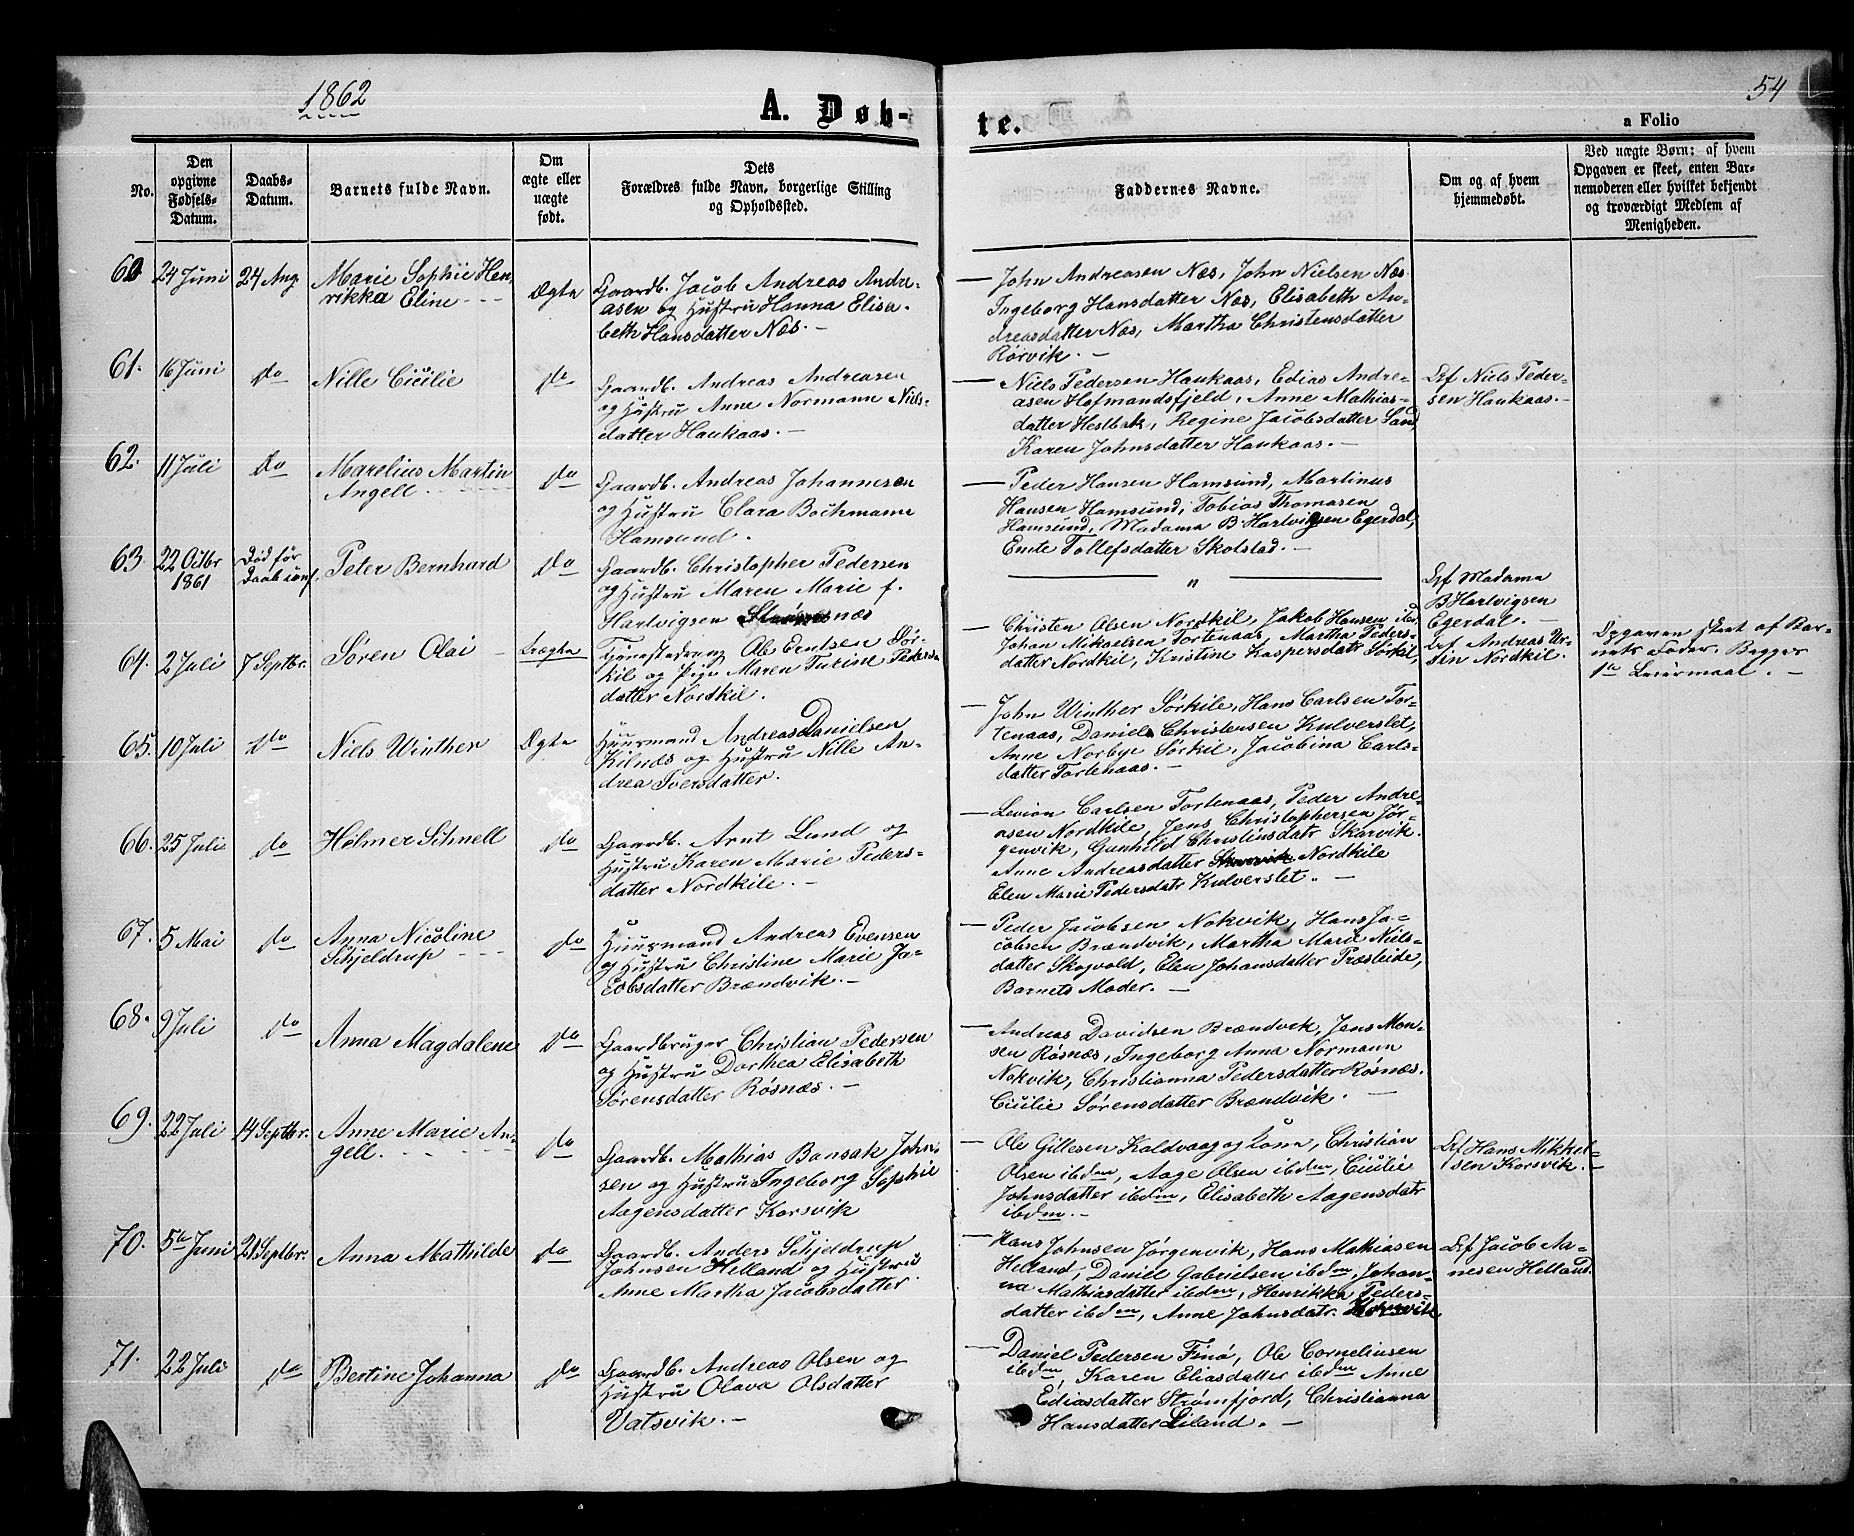 1862
54
A. Døb-
te.
a Folio
No.
Den
opgivne
Fødsels-
Datum.
Daabs-
Datum.
Barnets fulde Navn.
Om
ægte eller
uægte
født.
Dets
Forældres fulde Navn, borgerlige Stilling
og Opholdssted.
Faddernes Navne.
Om og af hvem
hjemmedøbt.
Ved uægte Børn: af hvem
Opgaven er skeet, enten Bar-
nemoderen eller hvilket bekjendt
og troværdigt Medlem af
Menigheden.
60 24 Juni 24 Aug.
Marie Sophie Hen-
rikka Eline
Ægte
Gaardb. Jacob Andreas Andre-
asen og Hustru Hanna Elisa-
beth Hansdatter Næs. —
— John Andreasen Næs, John Nielsen Næs
Ingeborg Hansdatter Næs, Elisabeth An-
dreasdatter Næs, Martha Christensdatter
Rørvik. —
61. 16 Juni do
Nille Cicilie
do
Gaardb. Andreas Andreasen
og Hustru Anne Normann Niels-
datter Haukaas. —
— Niels Pedersen Haukaas, Edias Andre-
asen Hofmandsfjeld, Anne Mathias-
datter Hestbak, Regine Jacobsdatter Sand,
Karen Johnsdatter Haukaas. —
Niels Peder-
sen Haukaas. —
62. 11 Juli Do
Marelius Martin
Angell
do
Gaardb. Andreas Johannesen
og Hustru Clara Bochmann
Hamsund.
— Peder Hansen Hamsund, Martinus
Hansen Hamsund, Tobias Thomasen
Hamsund, Madama B. Hartvigsen Egerdal,
Emte Tollefsdatter Skolstad. —
63. 22 Octbr
1861
Død før
Daab conf.
Peter Bernhard
Do
Gaardb. Christopher Pedersen
og Hustru Maren Marie f.
Hartvigsen
— " —
Madama
B Hartvigsen
Egerdal.
64. 2 Juli 7 Septbr.
Søren Olai
Uægte
Tjenestedreng Ole Entsen Sør-
kil og Pige Maren Turine Peders-
datter Nordkil.
— Christen Olsen Nordkil, Jakob Hansen ibd.
Johan Mikaelsen Tortenaas, Martha Peders-
datter Nordkil, Kristine Kaspersdatr Sørkil,
Andreas Ur-
sin Nordkil.
Opgaven skeet af Bar-
nets Fader. Begges
1te Leiermaal. —
65. 10 Juli do
Niels Winther
Ægte
Huusmand Andreas Danielsen
Kilnæs og Hustru Nille An-
drea Iversdatter.
— John Winther Sørkile, Hans Carlsen Tor-
tenaas, Daniel Christensen Kulverslet,
Anne Norbye Sørkil, Jacobina Carls-
datter Tortenaas. —
66. 25 Juli do
Holmer Schnell
do
Gaardb. Arnt Lund og
Hustru Karen Marie Peders-
datter Nordkile. —
— Levion Carlsen Tortenaas, Peder Andre-
asen Nordkile, Jens Christophersen Jør-
genvik, Gunhild Christiansdatr Skarvik.
Anne Andreasdatter Nordkile
Elen Marie Pedersdatr Kulverslet. —
67. 5 Mai do
Anna Nicoline
Schjeldrup
do
Huusmand Andreas Evensen
og Hustru Christine Marie Ja-
cobsdatter Brændvik. —
— Peder Jacobsen Nokvik, Hans Ja-
cobsen Brændvik, Martha Marie Niels-
datter Skogvold, Elen Johansdatter Træsleide,
Barnets Moder. —
68. 9 Juli do
Anna Magdalene
do
Gaardbruger Christian Pedersen
og Hustru Dorthea Elisabeth
Sørensdatter Røsnæs. —
— Andreas Davidsen Brændvik, Jens Mon-
sen Røsnæs, Ingeborg Anna Normann
Nokvik, Christianna Pedersdatter Røsnæs.
Cicilie Sørensdatter Brændvik. —
69. 22 Juli 14 Septbr.
Anne Marie An-
gell.
do
Gaardb. Mathias Bansak John-
sen og Hustru Ingeborg Sophie
Aagensdatter Korsvik
— Ole Gillesen Kaldvaag og Kone, Christian
Olsen ibdm, Aage Olsen ibdm, Cicilie
Johnsdatter ibdm, Elisabeth Aagensdatr
ibdm. —
Hans Mikkel-
sen Korsvik. —
70. 5te Juni 21 Septbr.
Anna Mathilde
do
Gaardb. Anders Schjeldrup
Johnsen Helland og Hustru
Anne Martha Jacobsdatter
— Hans Johnsen Jørgenvik, Hans Mathiasen
Helland, Daniel Gabrielsen ibdm, Johan-
na Mathiasdatter ibdm, Henrikka Peders-
datter ibdm, Anne Johnsdatr. Korsvik
Jacob Aa-
nesen Helland.
71. 22 Juli do
Bertine Johanna
do
Gaardb. Andreas Olsen og
Hustru Olava Olsdatter
Vatsvik. —
— Daniel Pedersen Finø, Ole Corneliusen
ibdm, Karen Eliasdatter ibdm Anne
Ediasdatter Strømfjord, Christianna
Hansdatter Liland. —